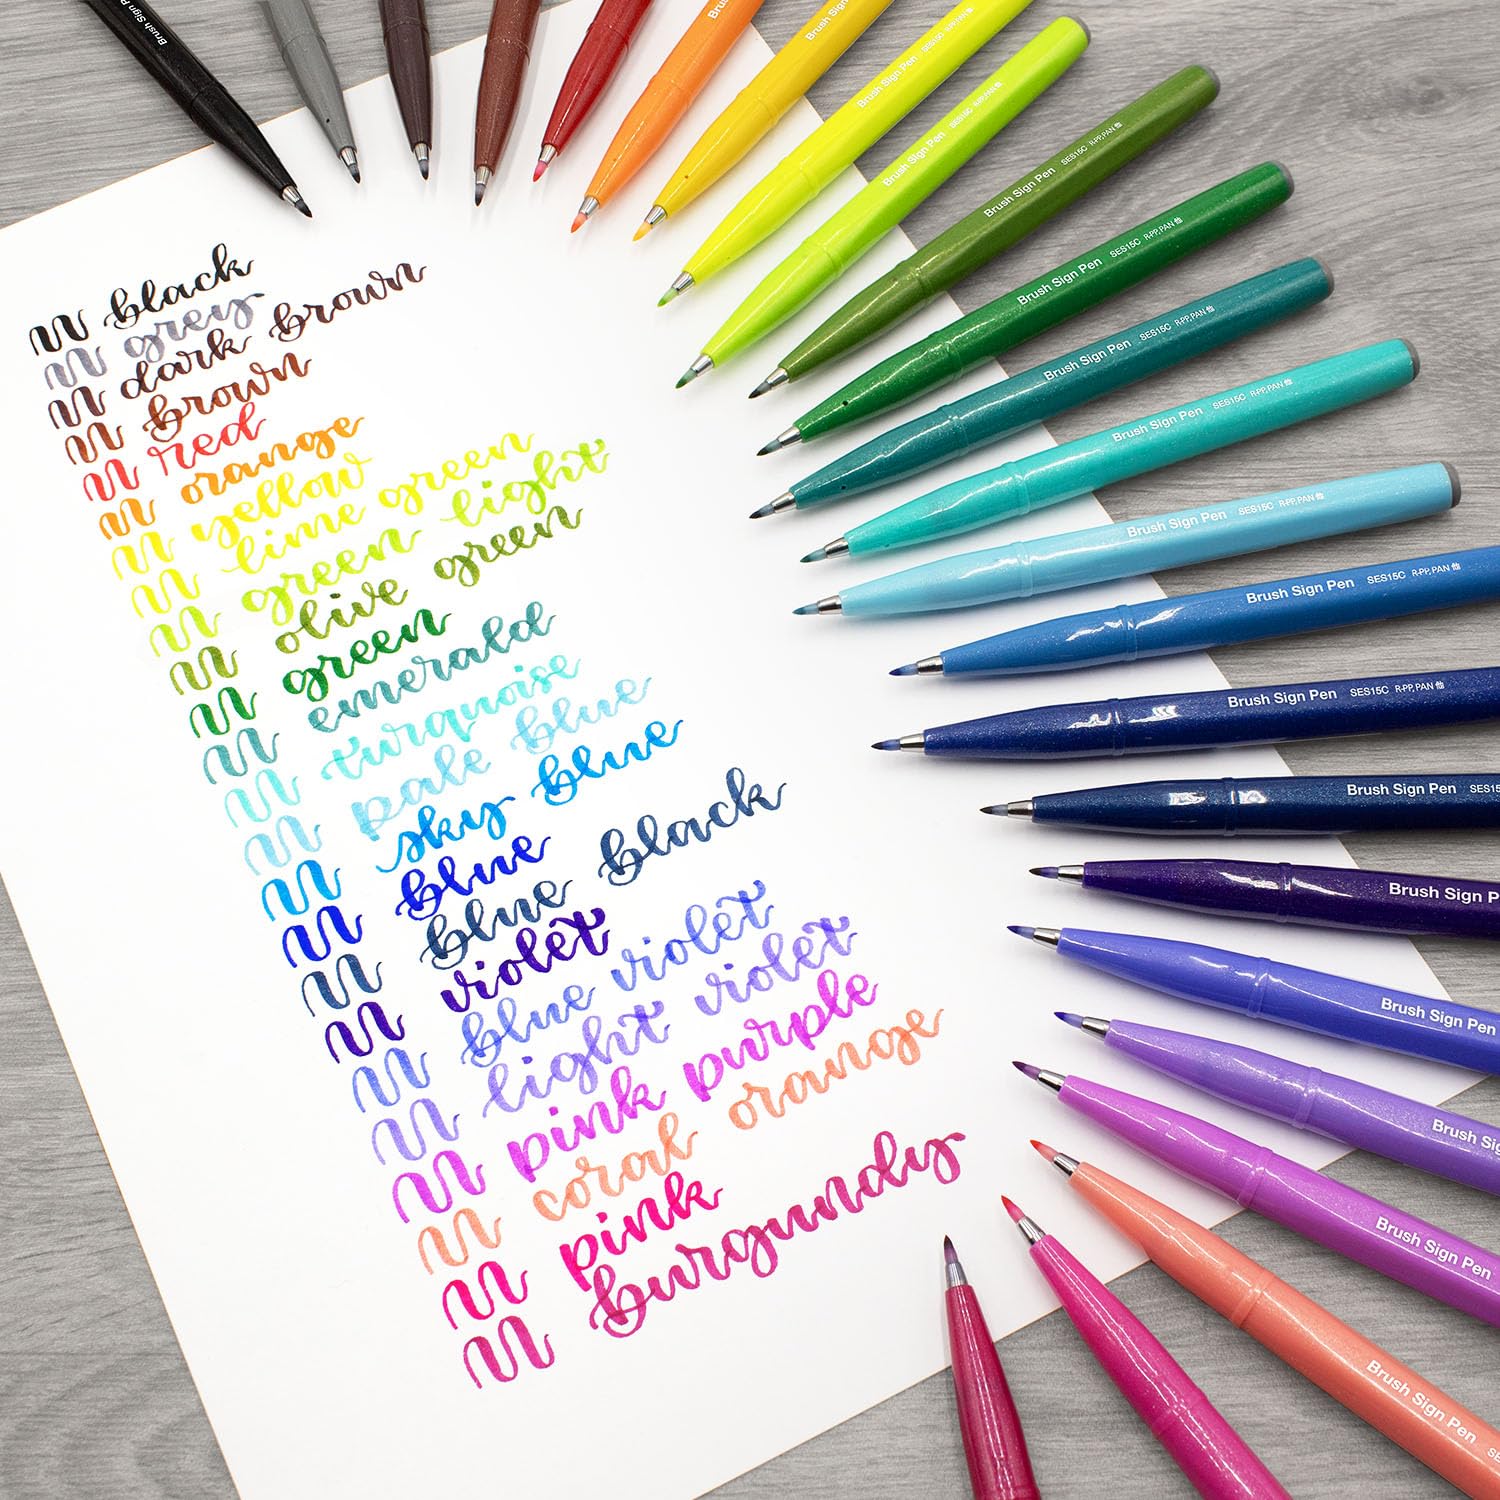 black
grey
dark brown
brown
red
orange
yellow
lime green
green light
olive green
green
emerald
turquoise
pale blue
sky blue
blue
blue black
violet
blue violet
light violet
pink purple
coral orange
pink
burgundy
Brush Sign P
Brush Sign
Brush Sign Pen
Brush Sign Pen SES15C R-PP,PAN
Brush Sign Pen SES15C R-PP,PAN
Brush Sign Pen SES15C R-PP,PAN
Brush Sign Pen SES15C R-PP,PAN
Brush Sign Pen SES15C R-PP,PAN
Brush Sign Pen SES15C R-PP,PAN
Brush Sign Pen SES15C R-PP,PAN
Brush Sign Pen SES15C R-PP,PAN
Brush Sign Pen SES15C R-PP,PAN
Brush Sign Pen SES15
Brush Sign Pen
Brush Sign Pen
Brush Sig
Brush Sign Pen
Brush Sign Pen SE